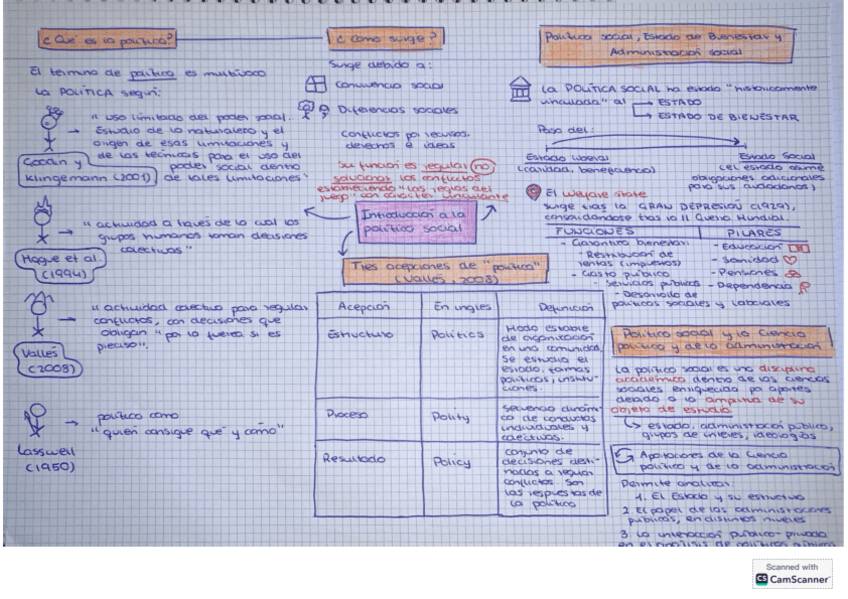 ¿Qué es la política?
El termino de política es multívoco
La POLÍTICA según:
"uso limitado del poder social.
Estudio de la naturaleza y el
origen de esas limitaciones y
de las técnicas para el uso del
poder social dentro
de tales limitaciones"
Goodin y
Klingemann (2001)
"actividad a través de la cual los
grupos humanos toman decisiones
colectivas"
Hague et al
(1994)
"actividad colectiva para regular
conflictos, con decisiones que
obligan "por la fuerza si es
preciso".
Vallés
(2008)
política como
"quién consigue qué y cómo"
Lasswell
(1950)
¿Cómo surge?
Surge debido a:
Convivencia social
Diferencias sociales
Conflictos por recursos,
derechos e ideas
Su función es regular (no
solucionar) los conflictos
estableciendo "las reglas del
juego" con carácter vinculante
Introducción a la
política social
Tres acepciones de "política"
(Vallés, 2008)
Acepción En inglés Definición
Estructura Politics Modo estable
de organización
en una comunidad.
Se estudia el
estado, formas
políticas, institu-
ciones.
Proceso Polity Secuencia dinámi-
ca de conductas
individuales y
colectivas.
Resultado Policy conjunto de
decisiones desti-
nadas a regular
conflictos. Son
las respuestas de
la política
Política social, Estado de Bienestar y
Administración social
La POLÍTICA SOCIAL ha estado "históricamente
vinculada" al → ESTADO
→ ESTADO DE BIENESTAR
Paso del:
Estado liberal
(caridad, beneficencia)
Estado Social
(el estado asume
obligaciones adicionales
para sus ciudadanos)
El Welfare state
surge tras la GRAN DEPRESIÓN (1929),
consolidándose tras la II Guerra Mundial.
FUNCIONES
- Garantice bienestar:
- Restribución de
rentas (impuestos)
- Gasto público
- Servicios públicos
- Desarrollo de
políticas sociales y laborales
PILARES
- Educación
- Sanidad
- Pensiones
- Dependencia
Política social y la Ciencia
política y de la administración
La política social es una disciplina
académica dentro de las ciencias
sociales enriquecida por aportes
debido a la amplitud de su
objeto de estudio
↳ estado, administración pública,
grupos de interés, ideologías
Aportaciones de la Ciencia
política y de la administración
Permite analizar:
1. El Estado y su estructura
2. El papel de las administraciones
públicas, en distintos niveles
3. La interacción público-privada
en el análisis de políticas
Scanned with
CS CamScanner